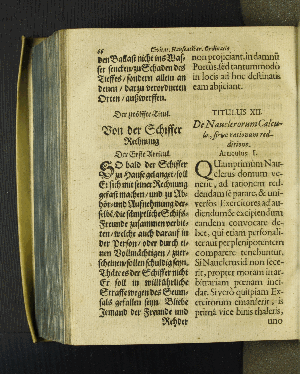 66 Civitat. Hanseaticar. Ordinatio
den Ballast nicht ins Was-
ser sencken/zu Schaden des
Tieffes/ sondern allein an
denen/ darzu verordneten
Orten/ außwerffen.
Der zwölffte Titul.
Von der Schiffer
Rechnung
Der Erste Articul.
SO bald der Schiffer
zu Hause gelanget/ soll
Er sich mit seiner Rechnung
gefast machen/ und zu An-
hör- und Auffnehmung der-
selbe/ die sämptliche Schiffs-
Freunde zusammen verbit-
ten/ welche auch darauf in
der Person/ oder durch ei-
nen Vollmächtigen/ zu er-
scheinen/ sollen schuldig seyn.
Thäte es der Schiffer nicht
Er soll in willkührliche
Straffe wegen des Seum-
sals gefallen seyn. Bliebe
Jemand der Freunde und
Rehder
non projiciant, in damnũ
Portus, sed tantummodo
in locis ad hoc destinatis
eam abjiciant.
TITULUS XII.
De Nauclerorum Calcu-
lo, sive rationum red-
ditione.
Articulus I.
QUamprimum Nau-
clerus domum ve-
nerit, ad rationem red-
dendam se paret, & uni-
versos Exercitores ad au-
diendum & excipiendum
eandem convocare de-
bet, qui etiam personali-
ter aut per plenipotentem
comparere tenebuntur.
Si Nauclerus id non fece-
rit, propter moram in ar-
bitrariam pœnam inci-
dat. Si verò quispiam Ex-
ercitorum emanserit, is
prima vice binis thaleris,
uno